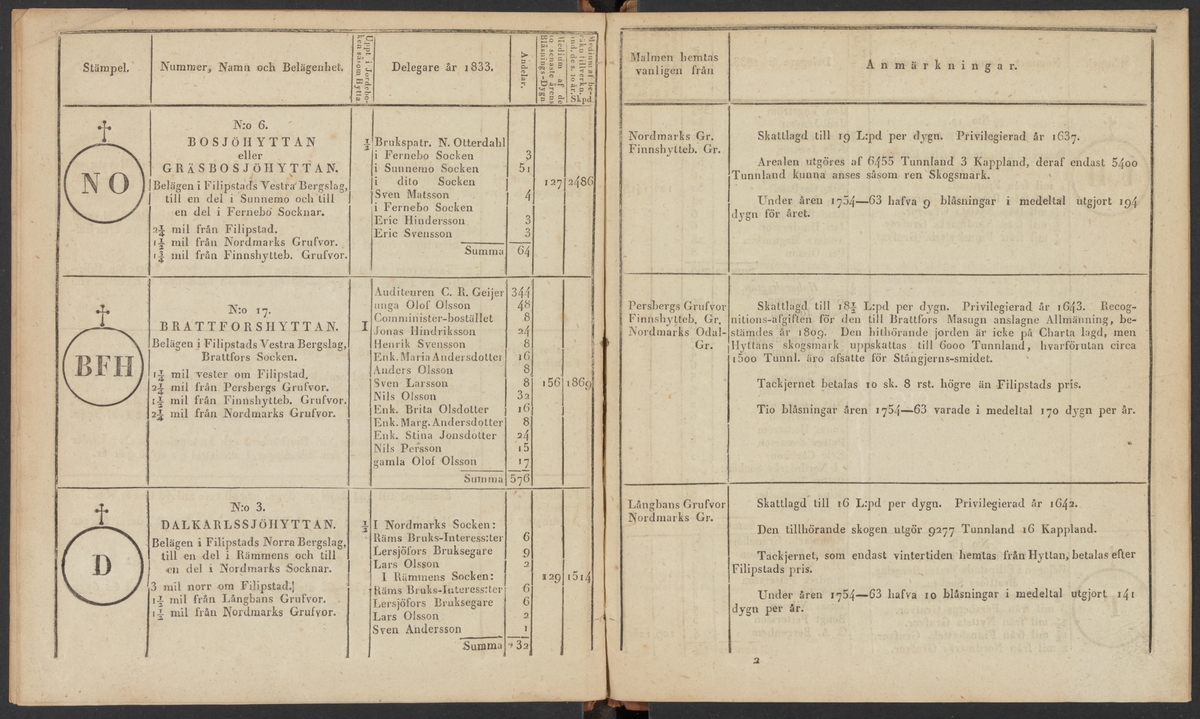 Stämpel.
Nummer, Namn och Belägenhet.
Uppt. i Jordebo-
ken såsom Hytta
Delegare år 1833.
Andelar.
Medium af de
10 senaste årens
Blåsnings-Dygn
Medium af be-
räkn. tillverkn.
und. de s. 10 år.
Skpd.
NO
N:o 6.
BOSJÖHYTTAN
eller
GRÄSBOSJÖHYTTAN.
Belägen i Filipstads Vestra Bergslag,
till en del i Sunnemo och till
en del i Fernebo Socknar.
2¼ mil från Filipstad.
1½ mil från Nordmarks Grufvor.
1¾ mil från Finnshytteb. Grufvor.
½
Brukspatr. N. Otterdahl
i Fernebo Socken 3
i Sunnemo Socken 51
i dito Socken 127 2486
Sven Matsson 4
i Fernebo Socken
Eric Hindersson 3
Eric Svensson 3
Summa 64
BFH
N:o 17.
BRATTFORSHYTTAN.
Belägen i Filipstads Vestra Bergslag,
Brattfors Socken.
1¼ mil vester om Filipstad.
2¼ mil från Persbergs Grufvor.
1½ mil från Finnshytteb. Grufvor.
2¼ mil från Nordmarks Grufvor.
I
Auditeuren C. R. Geijer 344
unga Olof Olsson 48
Comminister-bostället 8
Jonas Hindriksson 24
Henrik Svensson 8
Enk. Maria Andersdotter 16
Anders Olsson 8
Sven Larsson 8 156 1869
Nils Olsson 32
Enk. Brita Olsdotter 16
Enk. Marg. Andersdotter 8
Enk. Stina Jonsdotter 24
Nils Persson 15
gamla Olof Olsson 17
Summa 576
D
N:o 3.
DALKARLSSJÖHYTTAN.
Belägen i Filipstads Norra Bergslag,
till en del i Rämmens och till
en del i Nordmarks Socknar.
3 mil norr om Filipstad.
1½ mil från Långbans Grufvor.
1½ mil från Nordmarks Grufvor.
½
I Nordmarks Socken:
Räms Bruks-Interess:ter 6
Lersjöfors Bruksegare 9
Lars Olsson 2
I Rämmens Socken: 129 1514
Räms Bruks-Interess:ter 6
Lersjöfors Bruksegare 6
Lars Olsson 2
Sven Andersson 1
Summa 32
Malmen hemtas
vanligen från
Anmärkningar.
Nordmarks Gr.
Finnshytteb. Gr.
Skattlagd till 19 L:pd per dygn. Privilegierad år 1637.
Arealen utgöres af 6455 Tunnland 3 Kappland, deraf endast 5400
Tunnland kunna anses såsom ren Skogsmark.
Under åren 1754—63 hafva 9 blåsningar i medeltal utgjort 194
dygn för året.
Persbergs Grufvor
Finnshytteb. Gr.
Nordmarks Odal-
Gr.
Skattlagd till 18½ L:pd per dygn. Privilegierad år 1643. Recog-
nitions-afgiften för den till Brattfors Masugn anslagne Allmänning, be-
stämdes år 1809. Den hithörande jorden är icke på Charta lagd, men
Hyttans skogsmark uppskattas till 6000 Tunnland, hvarförutan circa
1500 Tunnl. äro afsatte för Stångjerns-smidet.
Tackjernet betalas 10 sk. 8 rst. högre än Filipstads pris.
Tio blåsningar åren 1754—63 varade i medeltal 170 dygn per år.
Långbans Grufvor
Nordmarks Gr.
Skattlagd till 16 L:pd per dygn. Privilegierad år 1642.
Den tillhörande skogen utgör 9277 Tunnland 16 Kappland.
Tackjernet, som endast vintertiden hemtas från Hyttan, betalas efter
Filipstads pris.
Under åren 1754—63 hafva 10 blåsningar i medeltal utgjort 141
dygn per år.
2